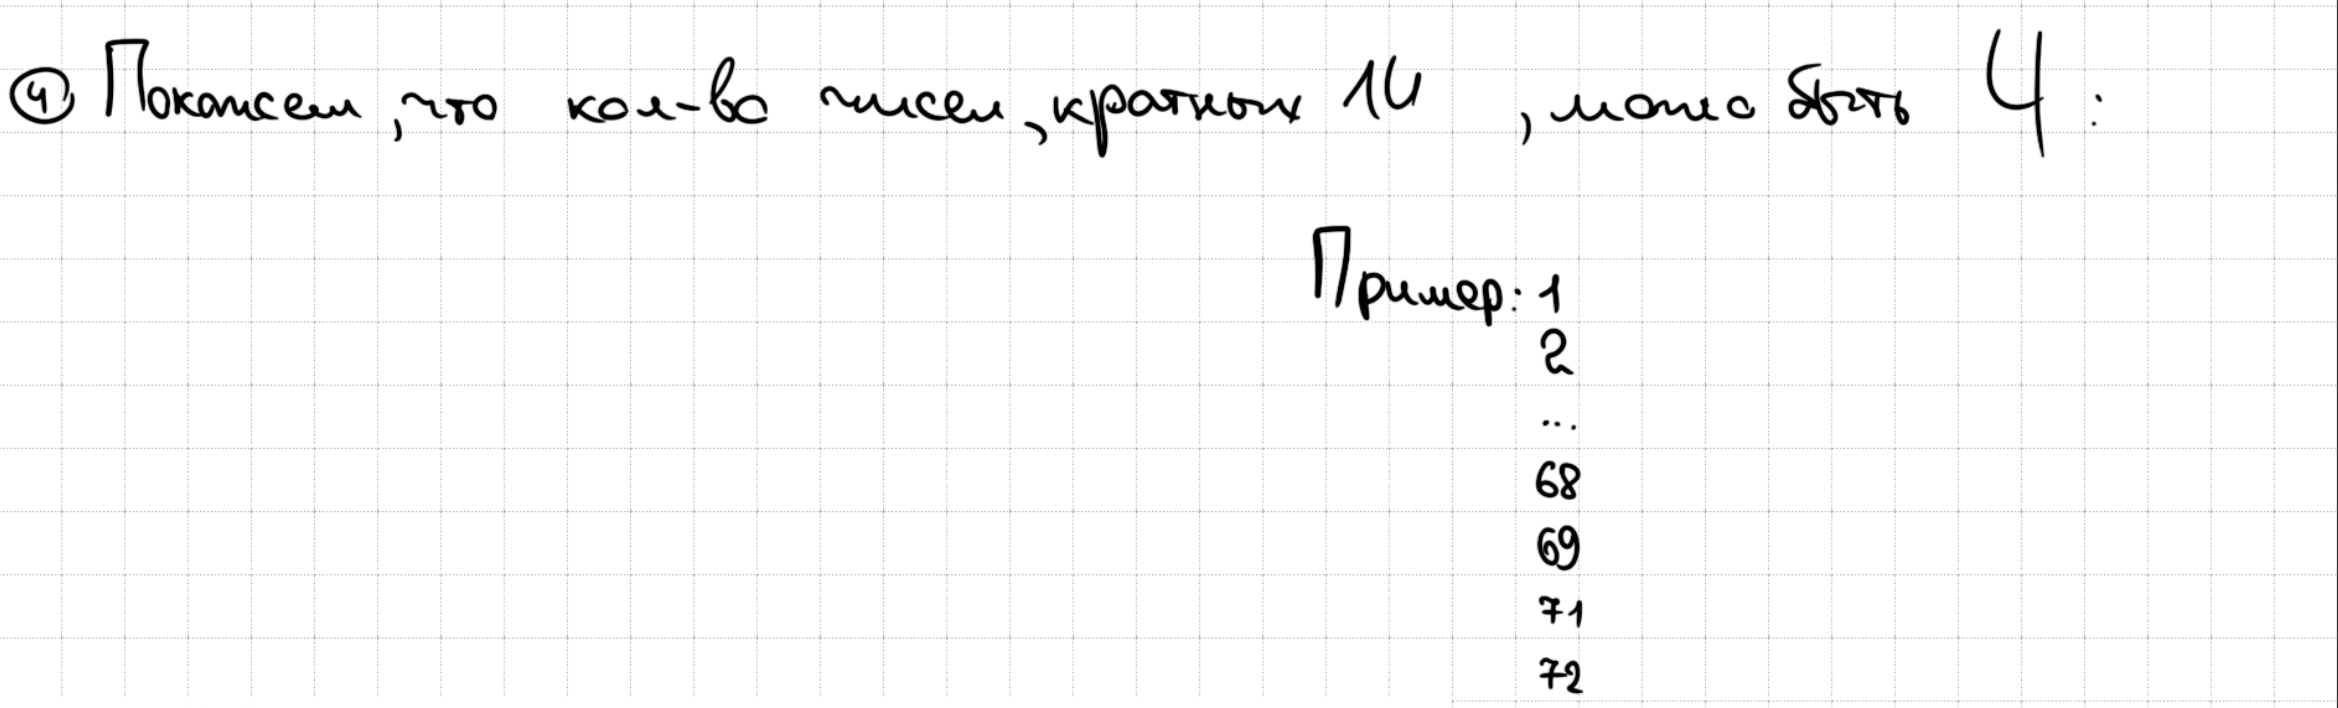 ④ Покажем, что кол-во чисел, кратных 14, может быть 4:
Пример: 1
2
...
68
69
71
72